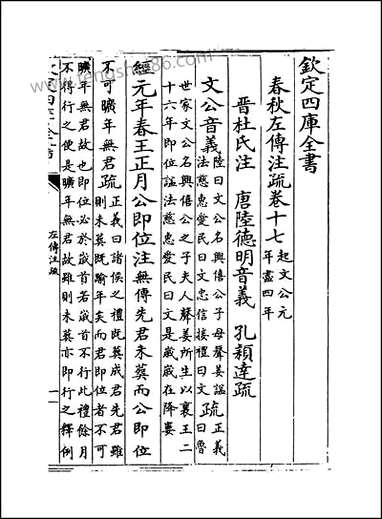 欽定四庫全書
春秋左傳注疏卷十七 起文公元
年盡四年
晉杜氏注 唐陸德明音義 孔穎達疏
文公音義 陸曰文公名興僖公子母聲姜諡
法慈惠愛民曰文忠信接禮曰文 疏 正義
曰魯
世家文公名興僖公之子夫人聲姜所生以襄王二
十六年即位諡法慈惠愛民曰文是歲歲在降婁
經元年春王正月公即位注無傳先君未葬而公即位
不可曠年無君 疏 正義曰諸侯之禮既葬成君先君雖
則未葬既踰年矣而君即位者不可
曠年無君故也即位必於歲首若歲首不行此禮餘月
不得行之便是曠年無君故雖則未葬亦即行之釋例
左傳注疏
一